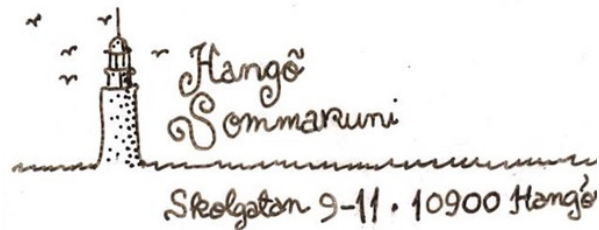 Hangö
Sommaruni
Skolgatan 9-11 • 10900 Hangö